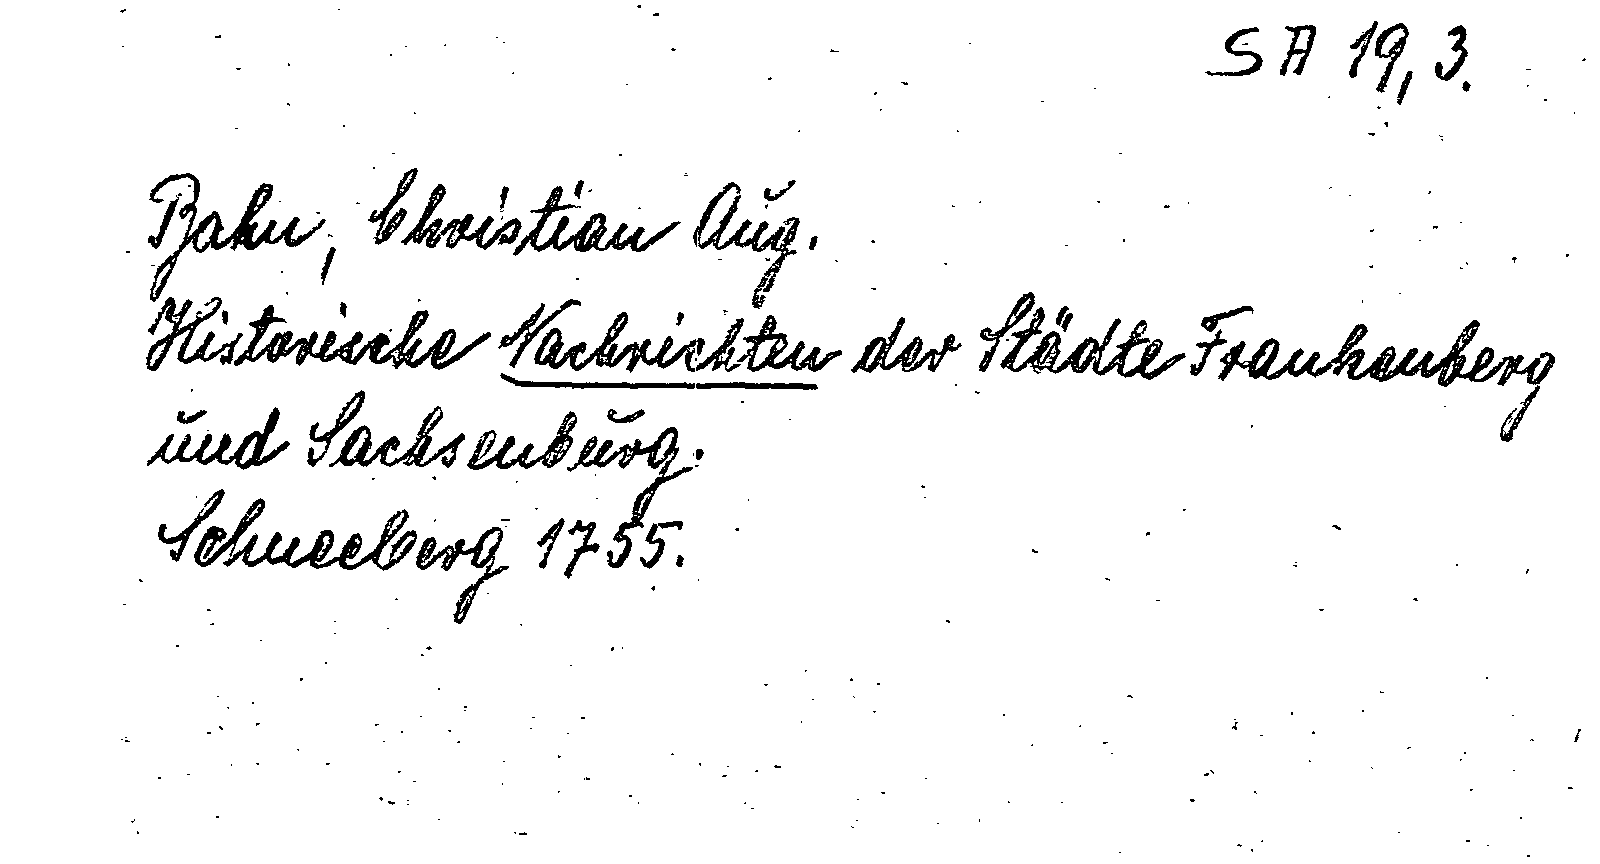 SA 19,3.
Bahn, Christian Aug.
Historische Nachrichten der Städte Frankenberg
und Sachsenburg.
Schneeberg 1755.